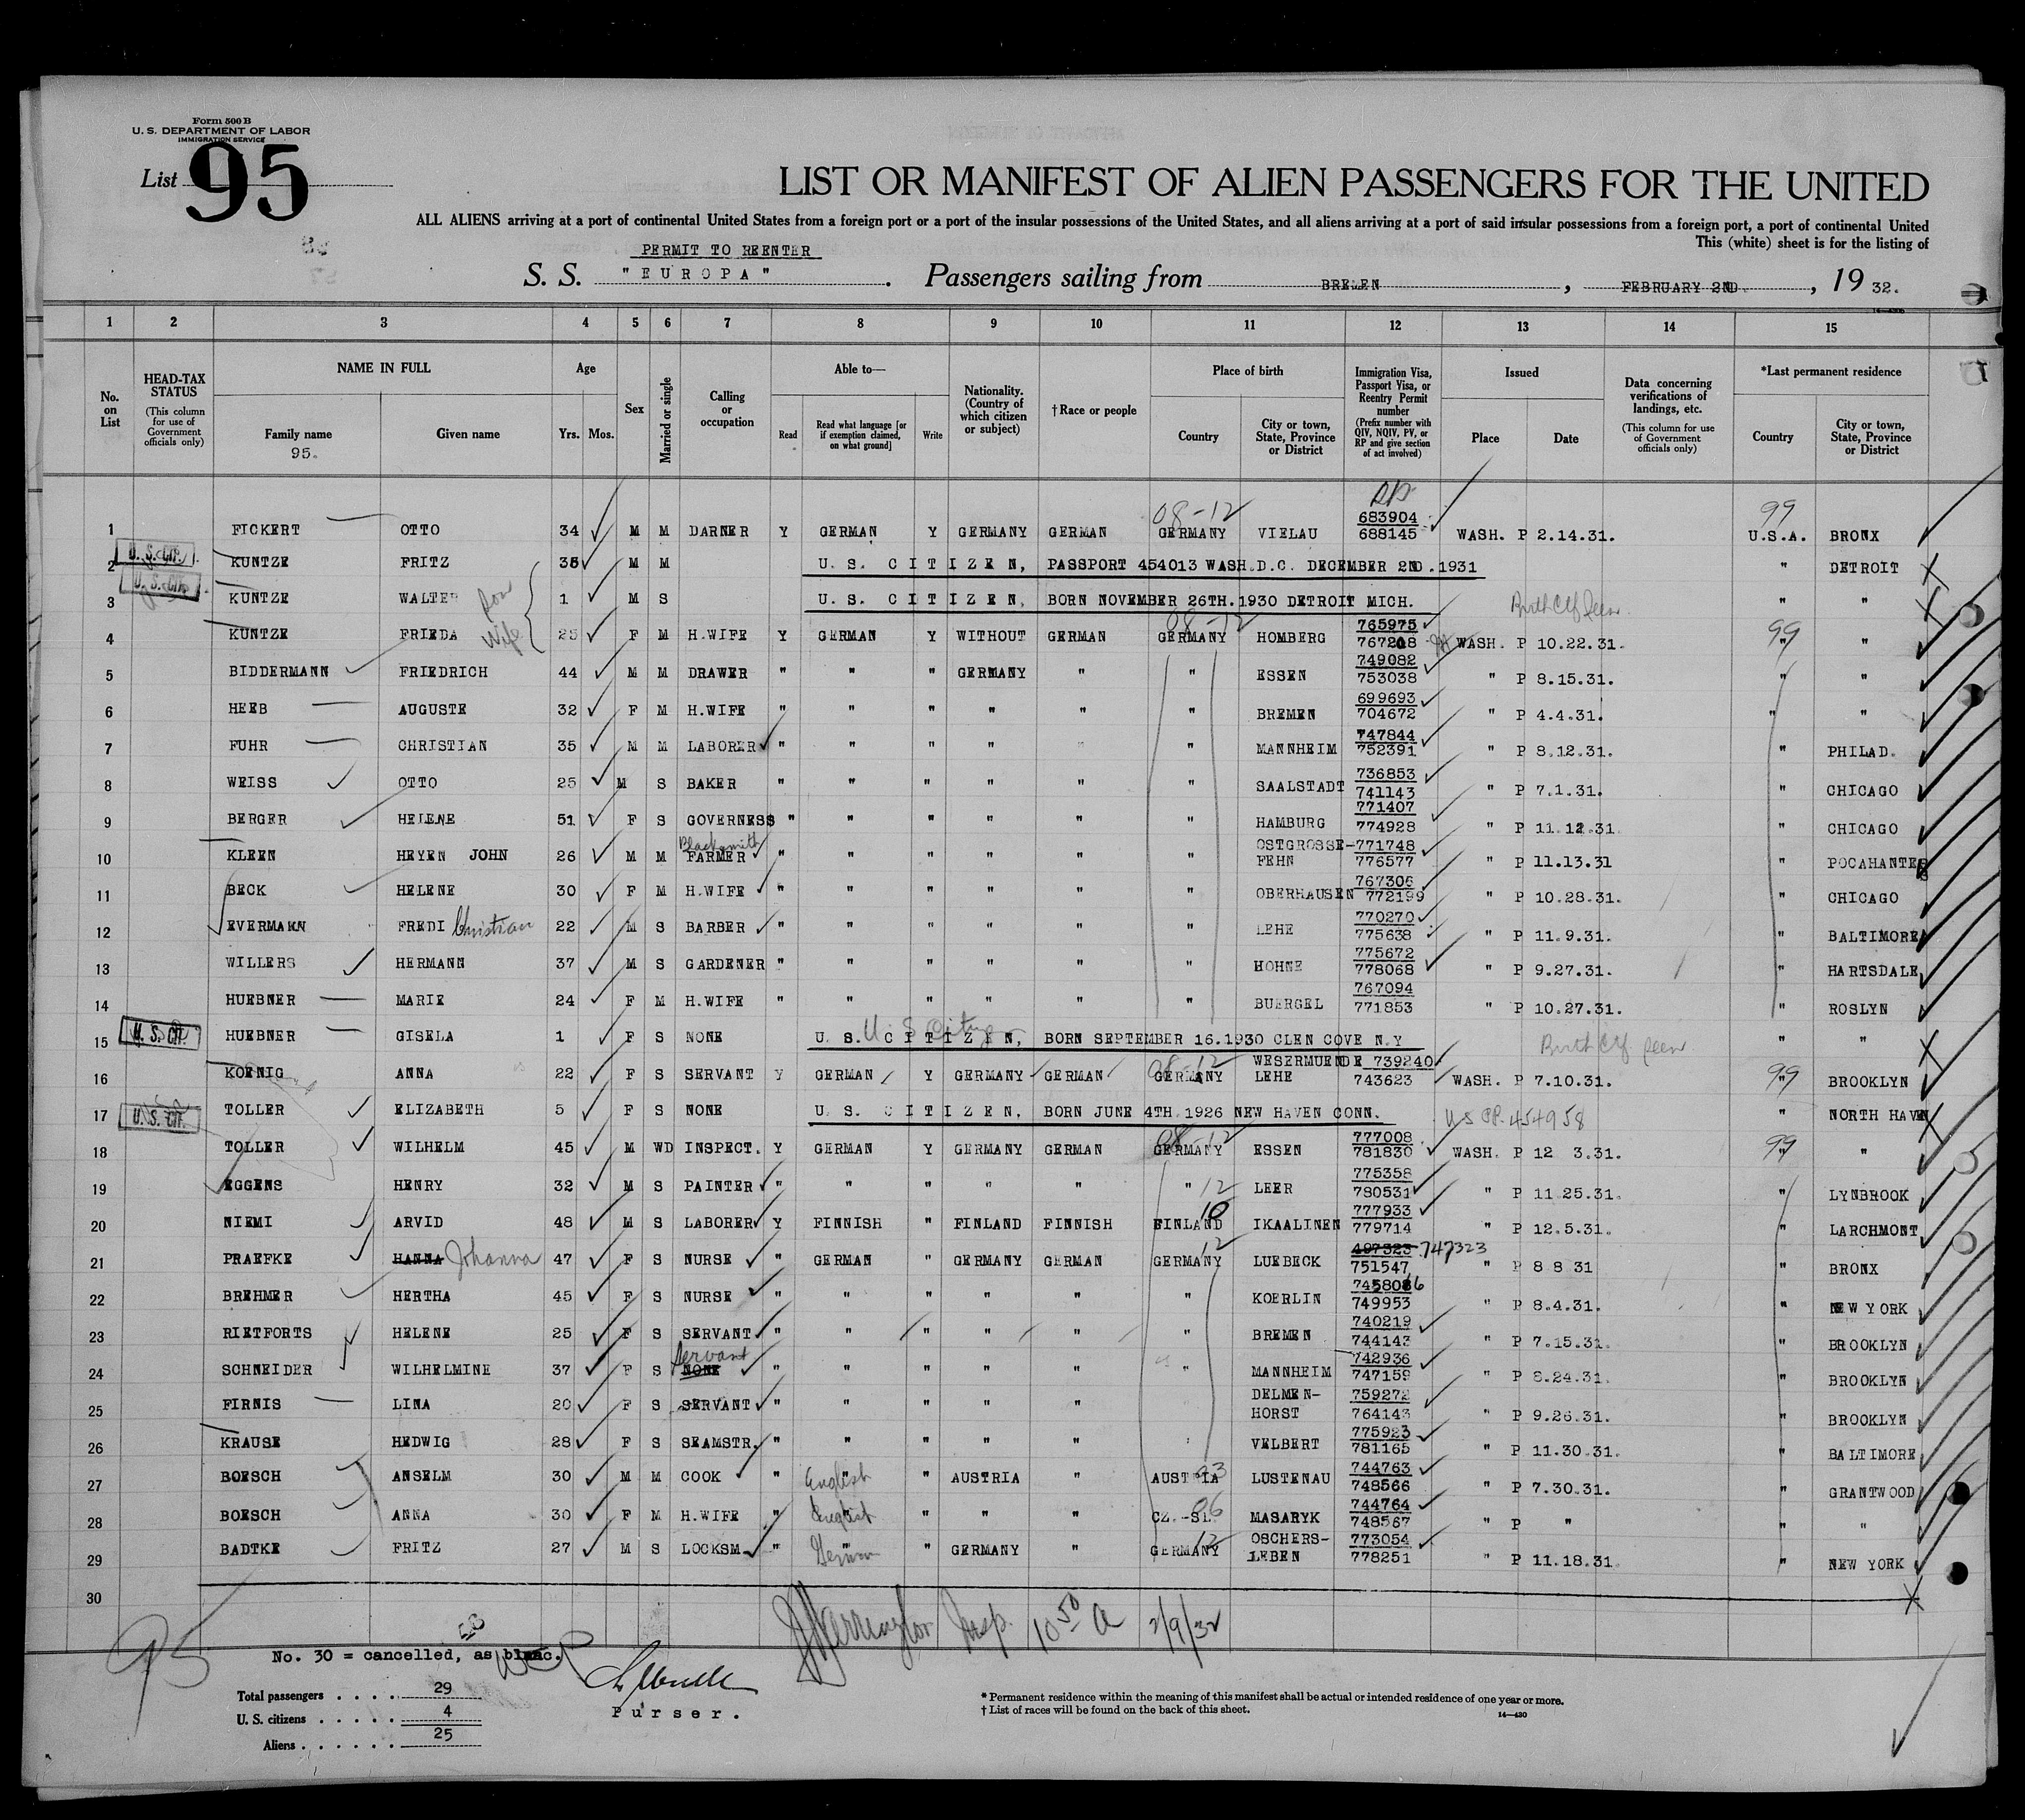 Form 500 B
U. S. DEPARTMENT OF LABOR
IMMIGRATION SERVICE
List 95
LIST OR MANIFEST OF ALIEN PASSENGERS FOR THE UNITED
ALL ALIENS arriving at a port of continental United States from a foreign port or a port of the insular possessions of the United States, and all aliens arriving at a port of said insular possessions from a foreign port, a port of continental United
This (white) sheet is for the listing of
PERMIT TO REENTER
S. S. "EUROPA". Passengers sailing from BREMEN, FEBRUARY 2ND., 1932.
1 2 3 4 5 6 7 8 9 10 11 12 13 14 15
No. on List
HEAD-TAX STATUS (This column for use of Government officials only)
NAME IN FULL
Family name 95.
Given name
Age Yrs. Mos.
Sex
Married or single
Calling or occupation
Able to—
Read
Read what language [or if exemption claimed, on what ground]
Write
Nationality. (Country of which citizen or subject)
†Race or people
Place of birth
Country
City or town, State, Province or District
Immigration Visa, Passport Visa, or Reentry Permit number (Prefix number with QIV, NQIV, PV, or RP and give section of act involved)
Issued
Place
Date
Data concerning verifications of landings, etc. (This column for use of Government officials only)
*Last permanent residence
Country
City or town, State, Province or District
RP 08-12 99
1 FICKERT OTTO 34 M M DARNER Y GERMAN Y GERMANY GERMAN GERMANY VIELAU 683904 688145 WASH. P 2.14.31. U.S.A. BRONX
2 U. S. CIT. KUNTZE FRITZ 35 M M U. S. CITIZEN, PASSPORT 454013 WASH.D.C. DECEMBER 2ND.1931 " DETROIT
3 U. S. CIT. KUNTZE WALTER son 1 M S U. S. CITIZEN, BORN NOVEMBER 26TH.1930 DETROIT MICH. Birth Ctf seen " "
4 KUNTZE FRIEDA wife 25 F M H.WIFE Y GERMAN Y WITHOUT GERMAN 08-12 GERMANY HOMBERG 765975 767208 WASH. P 10.22.31. 99 " "
5 BIDDERMANN FRIEDRICH 44 M M DRAWER " " " GERMANY " " ESSEN 749082 753038 " P 8.15.31. " "
6 HEEB AUGUSTE 32 F M H.WIFE " " " " " " BREMEN 699693 704672 " P 4.4.31. " "
7 FUHR CHRISTIAN 35 M M LABORER " " " " " " MANNHEIM 747844 752391 " P 8.12.31. " PHILAD.
8 WEISS OTTO 25 M S BAKER " " " " " " SAALSTADT 736853 741143 " P 7.1.31. " CHICAGO
9 BERGER HELENE 51 F S GOVERNESS " " " " " " HAMBURG 771407 774928 " P 11.12.31. " CHICAGO
10 KLEEN HEYEN JOHN 26 M M Blacksmith FARMER " " " " " " OSTGROSSE-FEHN 771748 776577 " P 11.13.31 " POCAHANTES
11 BECK HELENE 30 F M H.WIFE " " " " " " OBERHAUSEN 767306 772199 " P 10.28.31. " CHICAGO
12 EVERMANN FREDI Christian 22 M S BARBER " " " " " " LEHE 770270 775638 " P 11.9.31. " BALTIMORE
13 WILLERS HERMANN 37 M S GARDENER " " " " " " HOHNE 775672 778068 " P 9.27.31. " HARTSDALE
14 HUEBNER MARIE 24 F M H.WIFE " " " " " " BUERGEL 767094 771853 " P 10.27.31. " ROSLYN
15 U. S. CIT. HUEBNER GISELA 1 F S NONE U. S. CITIZEN, BORN SEPTEMBER 16.1930 CLEN COVE N.Y Birth Ctf seen " "
16 KOENIG ANNA 22 F S SERVANT Y GERMAN Y GERMANY GERMAN 08-12 GERMANY WESERMUENDE LEHE 739240 743623 WASH. P 7.10.31. 99 " BROOKLYN
17 U. S. CIT. TOLLER ELIZABETH 5 F S NONE U. S. CITIZEN, BORN JUNE 4TH.1926 NEW HAVEN CONN. US PP. 454958 " NORTH HAVEN
18 TOLLER WILHELM 45 M WD INSPECT. Y GERMAN Y GERMANY GERMAN 08-12 GERMANY ESSEN 777008 781830 WASH. P 12 3.31. 99 " "
19 EGGENS HENRY 32 M S PAINTER " " " " " " 12 LEER 775358 780531 " P 11.25.31. " LYNBROOK
20 NIEMI ARVID 48 M S LABORER Y FINNISH " FINLAND FINNISH 10 FINLAND IKAALINEN 777933 779714 " P 12.5.31. " LARCHMONT
21 PRAEFKE HANNA Johanna 47 F S NURSE " GERMAN " GERMANY GERMAN 12 GERMANY LUEBECK 497323 747323 751547 " P 8 8 31 " BRONX
22 BREHMER HERTHA 45 F S NURSE " " " " " " KOERLIN 745806 749953 " P 8.4.31. " NEW YORK
23 RIETFORTS HELENE 25 F S SERVANT " " " " " " BREMEN 740219 744143 " P 7.15.31. " BROOKLYN
24 SCHNEIDER WILHELMINE 37 F S Servant NONE " " " " " " MANNHEIM 742936 747159 " P 8.24.31. " BROOKLYN
25 FIRNIS LINA 20 F S SERVANT " " " " " " DELMEN-HORST 759272 764143 " P 9.26.31. " BROOKLYN
26 KRAUSE HEDWIG 28 F S SEAMSTR. " " " " " " VELBERT 775923 781165 " P 11.30.31. " BALTIMORE
27 BOESCH ANSELM 30 M M COOK " English " AUSTRIA " AUSTRIA LUSTENAU 744763 748566 " P 7.30.31. " GRANTWOOD
28 BOESCH ANNA 30 F M H.WIFE " English " " " CZ.-SL. 06 MASARYK 744764 748567 " P " " "
29 BADTKE FRITZ 27 M S LOCKSM. " German " GERMANY " 12 GERMANY OSCHERS-LEBEN 773054 778251 " P 11.18.31. " NEW YORK
30
Insp. 10 50 a 2/9/32
95
No. 30 = cancelled, as blanc.
Purser.
Total passengers . . . . 29
U. S. citizens . . . . . 4
Aliens . . . . . . 25
* Permanent residence within the meaning of this manifest shall be actual or intended residence of one year or more.
† List of races will be found on the back of this sheet.
14—430